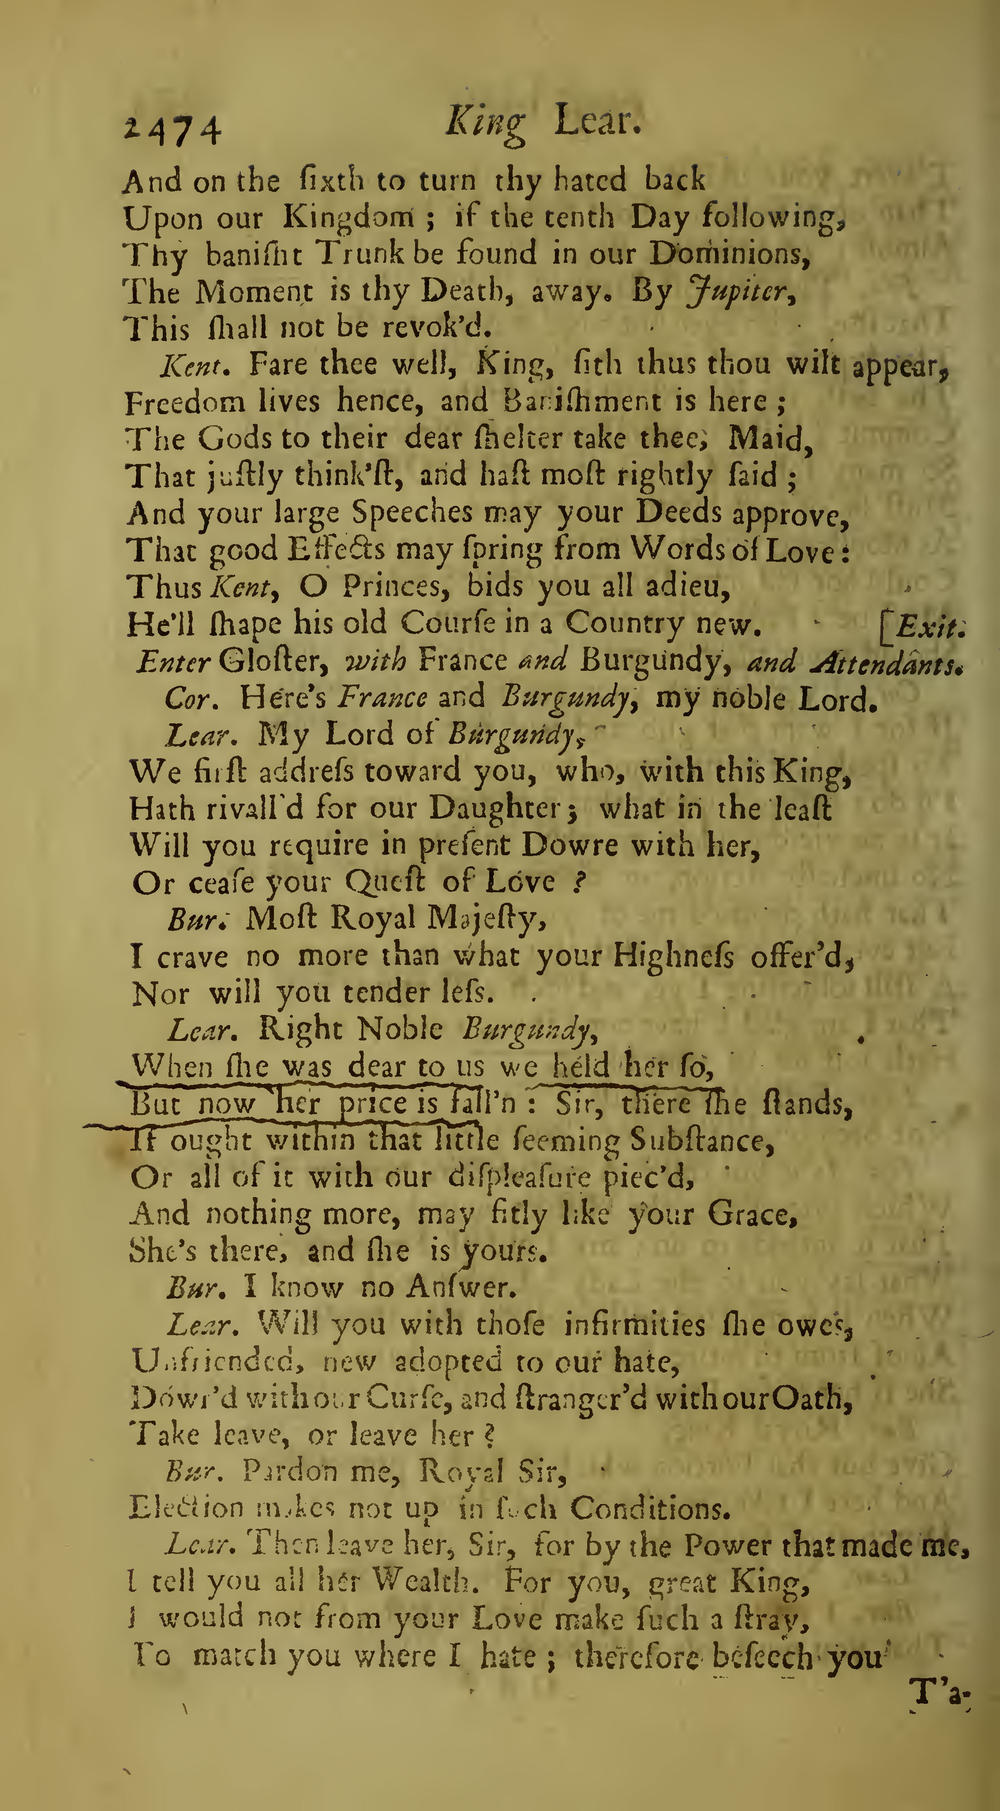 2474 King Lear.
And on the ſixth to turn thy hated back
Upon our Kingdom ; if the tenth Day following,
Thy baniſht Trunk be found in our Dominions,
The Moment is thy Death, away. By Jupiter,
This ſhall not be revok'd.
Kent. Fare thee well, King, ſith thus thou wilt appear,
Freedom lives hence, and Baniſhment is here ;
The Gods to their dear ſhelter take thee, Maid,
That juſtly think'ſt, and haſt moſt rightly ſaid ;
And your large Speeches may your Deeds approve,
That good Effects may ſpring from Words of Love :
Thus Kent, O Princes, bids you all adieu,
He'll ſhape his old Courſe in a Country new. [Exit.
Enter Gloſter, with France and Burgundy, and Attendants.
Cor. Here's France and Burgundy, my noble Lord.
Lear. My Lord of Burgundy,
We firſt addreſs toward you, who, with this King,
Hath rivall'd for our Daughter ; what in the leaſt
Will you require in preſent Dowre with her,
Or ceaſe your Queſt of Love ?
Bur. Moſt Royal Majeſty,
I crave no more than what your Highneſs offer'd,
Nor will you tender leſs.
Lear. Right Noble Burgundy,
When ſhe was dear to us we held her ſo,
But now her price is fall'n : Sir, there ſhe ſtands,
If ought within that little ſeeming Subſtance,
Or all of it with our diſpleaſure piec'd,
And nothing more, may fitly like your Grace,
She's there, and ſhe is yours.
Bur. I know no Anſwer.
Lear. Will you with thoſe infirmities ſhe owes,
Unfriended, new adopted to our hate,
Dowr'd with our Curſe, and ſtranger'd with our Oath,
Take leave, or leave her ?
Bur. Pardon me, Royal Sir,
Election makes not up in ſuch Conditions.
Lear. Then leave her, Sir, for by the Power that made me,
I tell you all her Wealth. For you, great King,
I would not from your Love make ſuch a ſtray,
To match you where I hate ; therefore beſeech you
T'a-